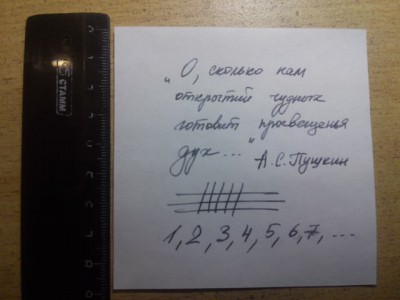 СТАММ
„О, сколько нам
открытий чудных
готовит просвещенья
дух..."
А.С.Пушкин
1,2,3,4,5,6,7,...